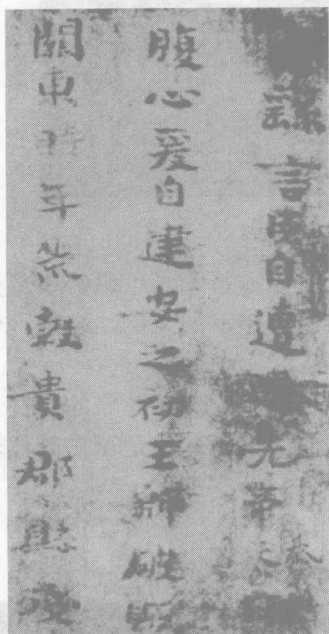 繇言臣自遭先帝忝
腹心爰自建安之初王師破賊
關東時年荒穀貴郡縣殘